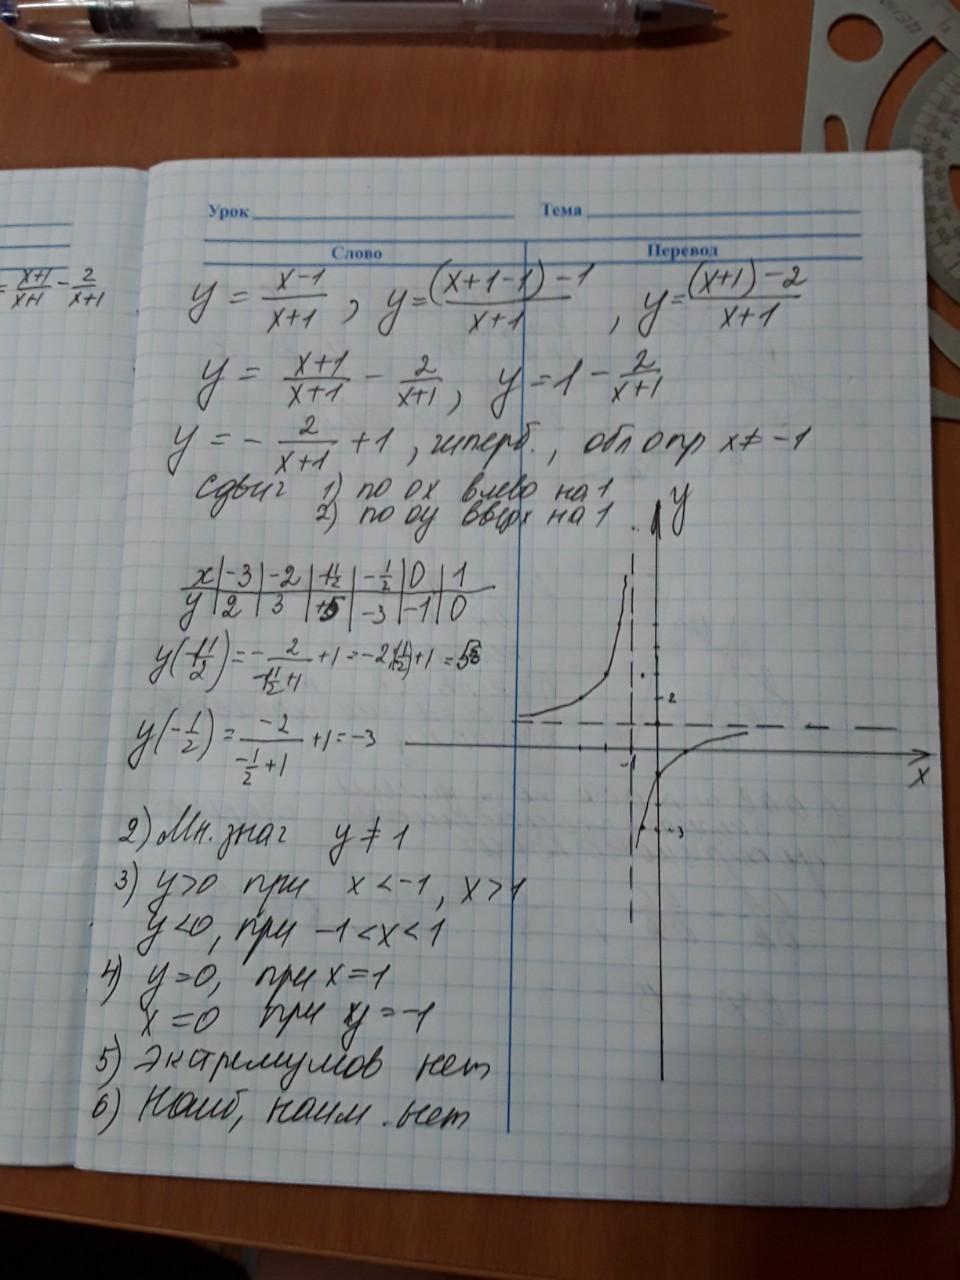 = x+1/x+1 - 2/x+1
Урок Тема
Слово Перевод
y = x-1/x+1 , y = (x+1-1)-1/x+1 , y = (x+1)-2/x+1
y = x+1/x+1 - 2/x+1 , y = 1 - 2/x+1
y = - 2/x+1 + 1 , гиперб. , обл опр x ≠ -1
Сдвиг 1) по ох влево на 1
2) по оу вверх на 1
y
x | -3 | -2 | | -1/2 | 0 | 1
y | 2 | 3 | +5 | -3 | -1 | 0
2
-1
x
-3
y(-1/2) = -2/-1/2+1 + 1 = -3
2) Мн. знач y ≠ 1
3) y>0 при x < -1, x > 1
y<0, при -1 < x < 1
4) y = 0, при x = 1
x = 0 при y = -1
5) Экстремумов нет
6) Наиб, наим. нет